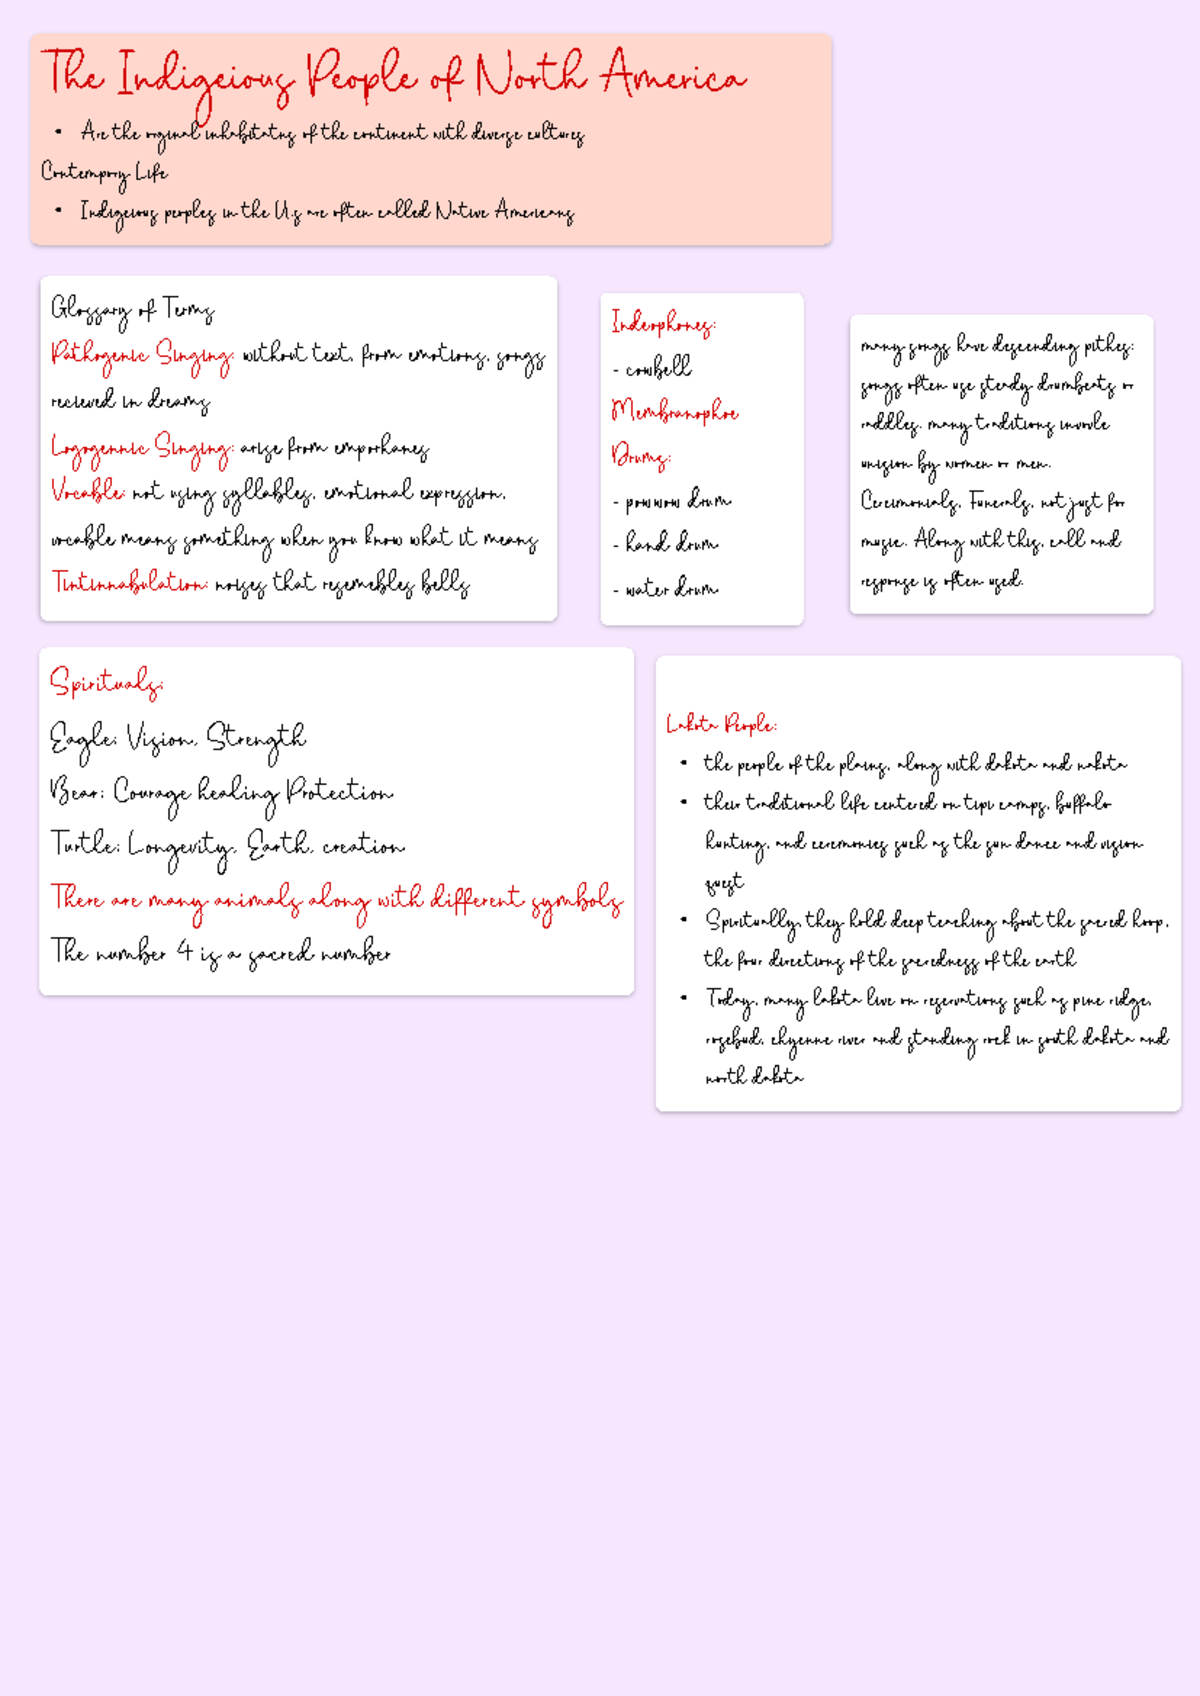 The Indigeious People of North America
• Are the orginal inhabitatns of the continent with diverse cultures
Contempory Life
• Indigeious peoples in the U.s are often called Native Americans
Glossary of Terms
Pathogenic Singing: without text, from emotions, songs
recieved in dreams
Logogennic Singing: arise from emporhanes
Vocable: not using syllables, emotional expression,
vocable means something when you know what it means
Tintinnabulation: noises that resemebles bells
Inderphones:
- cowbell
Membranophoe
Drums:
- powwow drum
- hand drum
- water drum
many songs have descending pithes:
songs often use steady drumbeats or
raddles. many traditions invovle
unision by women or men.
Cerimonials, Funerals, not just for
music. Along with this, call and
response is often used.
Spirituals:
Eagle: Vision, Strength
Bear: Courage healing Protection
Turtle: Longevity, Earth, creation
There are many animals along with different symbols
The number 4 is a sacred number
Lakota People:
• the people of the plains, along with dakota and nakota
• their traditional life centered on tipi camps, buffalo
hunting, and ceremonies such as the sun dance and vision
quest
• Spiritually, they hold deep teaching about the sacred hoop,
the four directions of the sacredness of the earth
• Today, many lakota live on reservations such as pine ridge,
rosebud, chyenne river and standing rock in south dakota and
north dakota